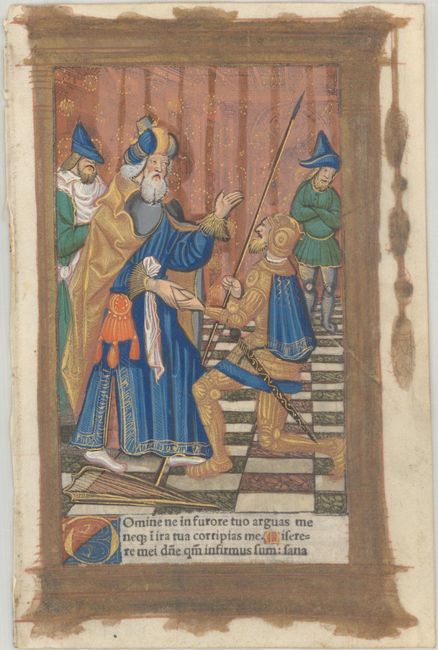 Domine ne in furore tuo arguas me
neqꝫ ī ira tua corripias me. Misere-
re mei dñe qm̄ infirmus sum: sana